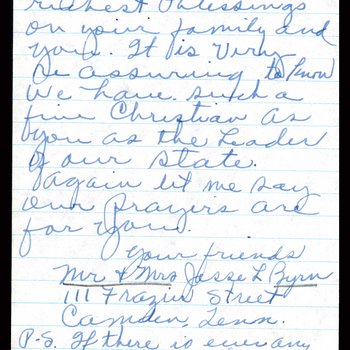 richest blessings
on your family and
you. It is very
re assuring to know
we have such a
fine Christian as
you as the leader
of our state.
Again let me say
our prayers are
for you.
Your friends
Mr & Mrs Jesse L Byrn
111 Frazier Street
Camden, Tenn.
P-S. If there is ever any